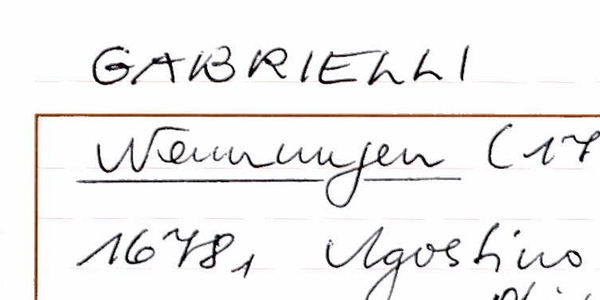 GABRIELLI
Nennungen (17
1678, Agostino